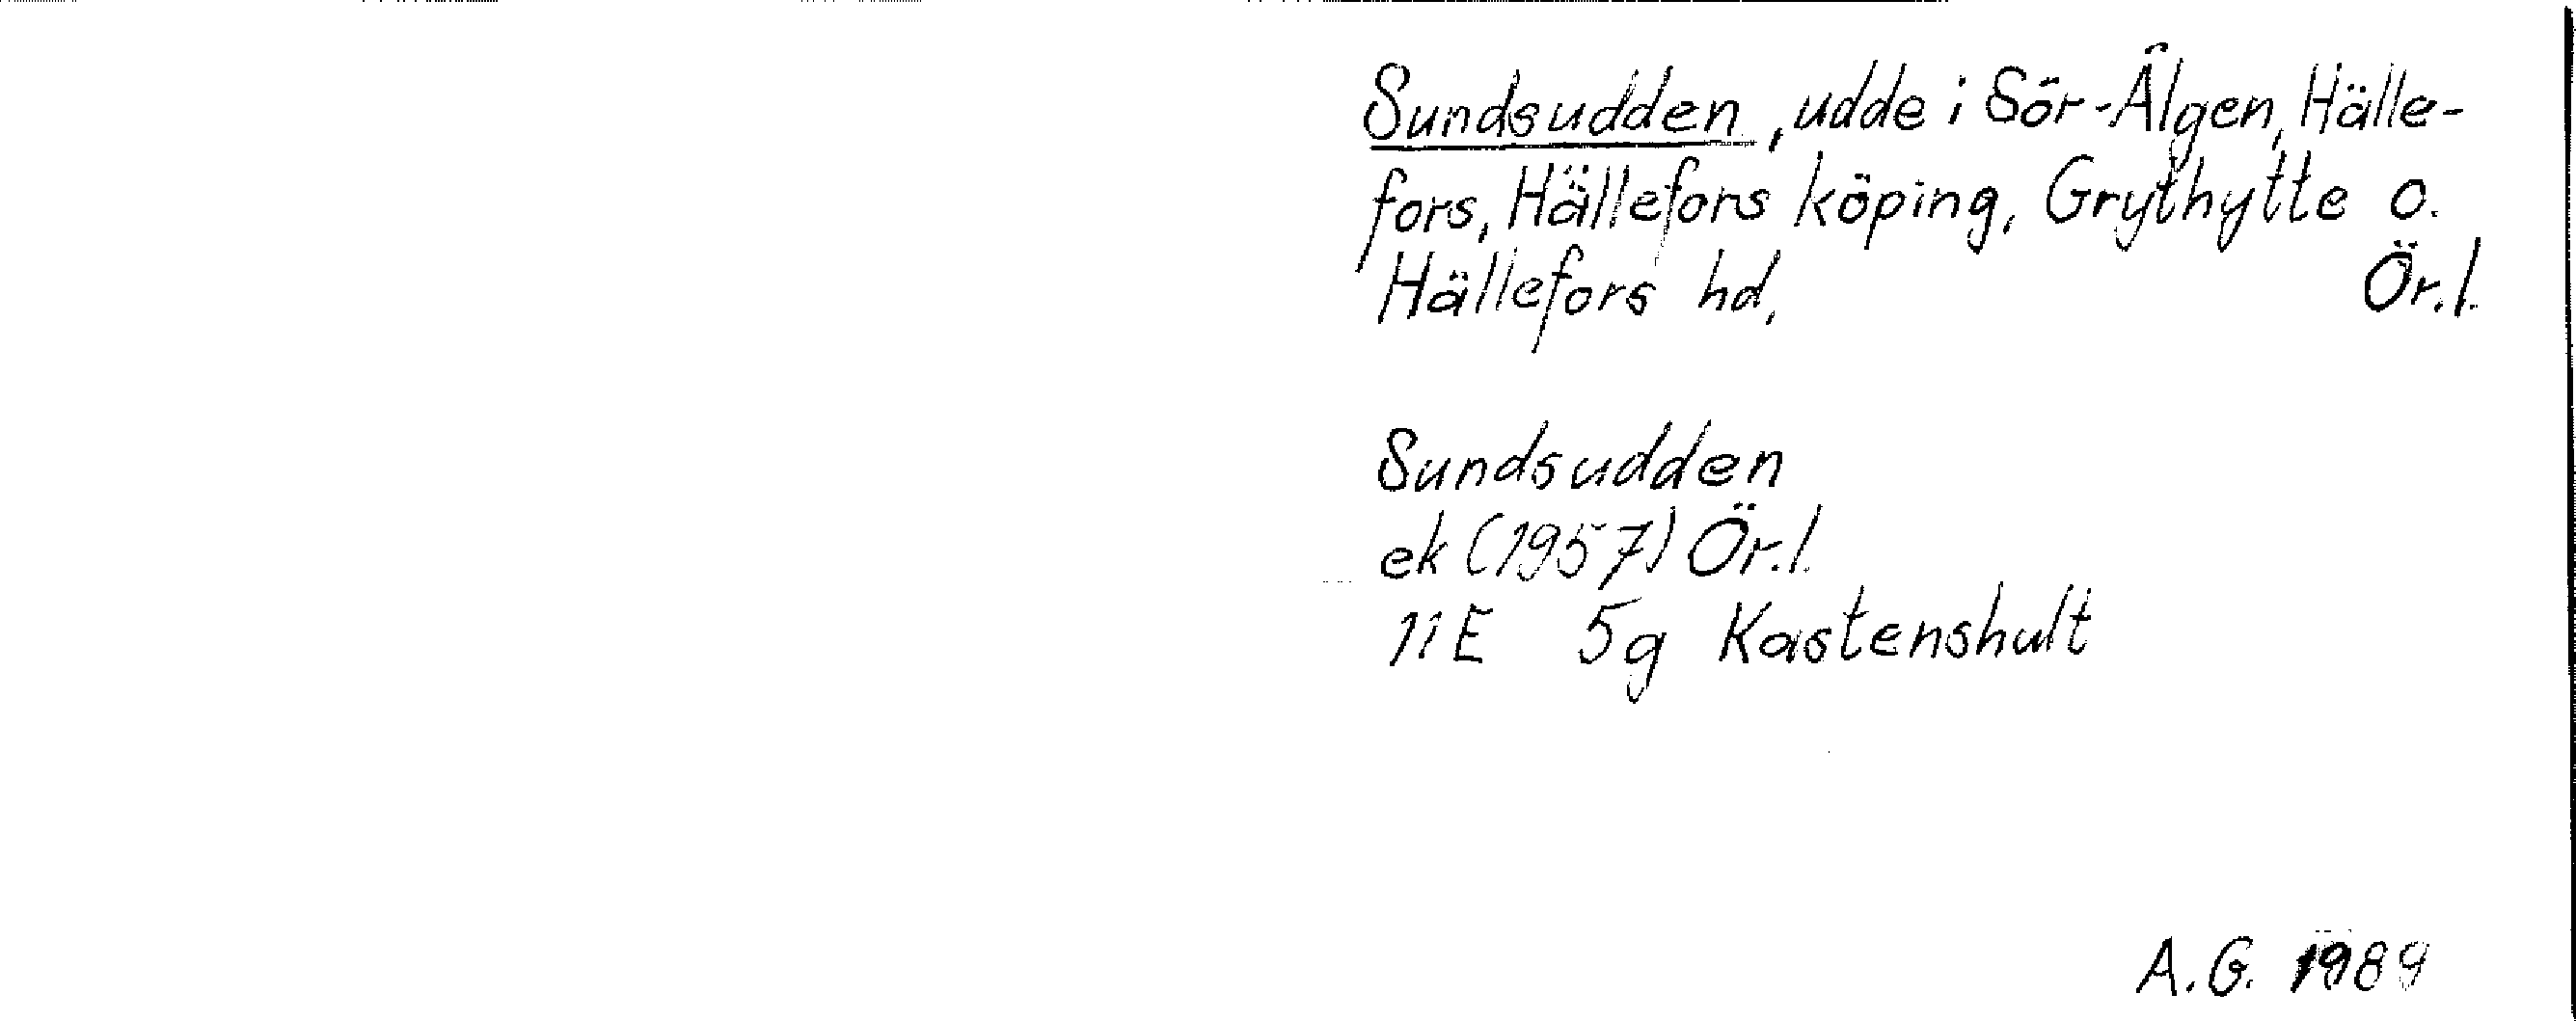 Sundsudden, udde i Sör-Älgen, Hälle-
fors, Hällefors köping, Grythytte o.
Hällefors hd, Ör.l.
Sundsudden
ek (1957) Ör.l.
11E 5g Kastenshult
A.G. 1989